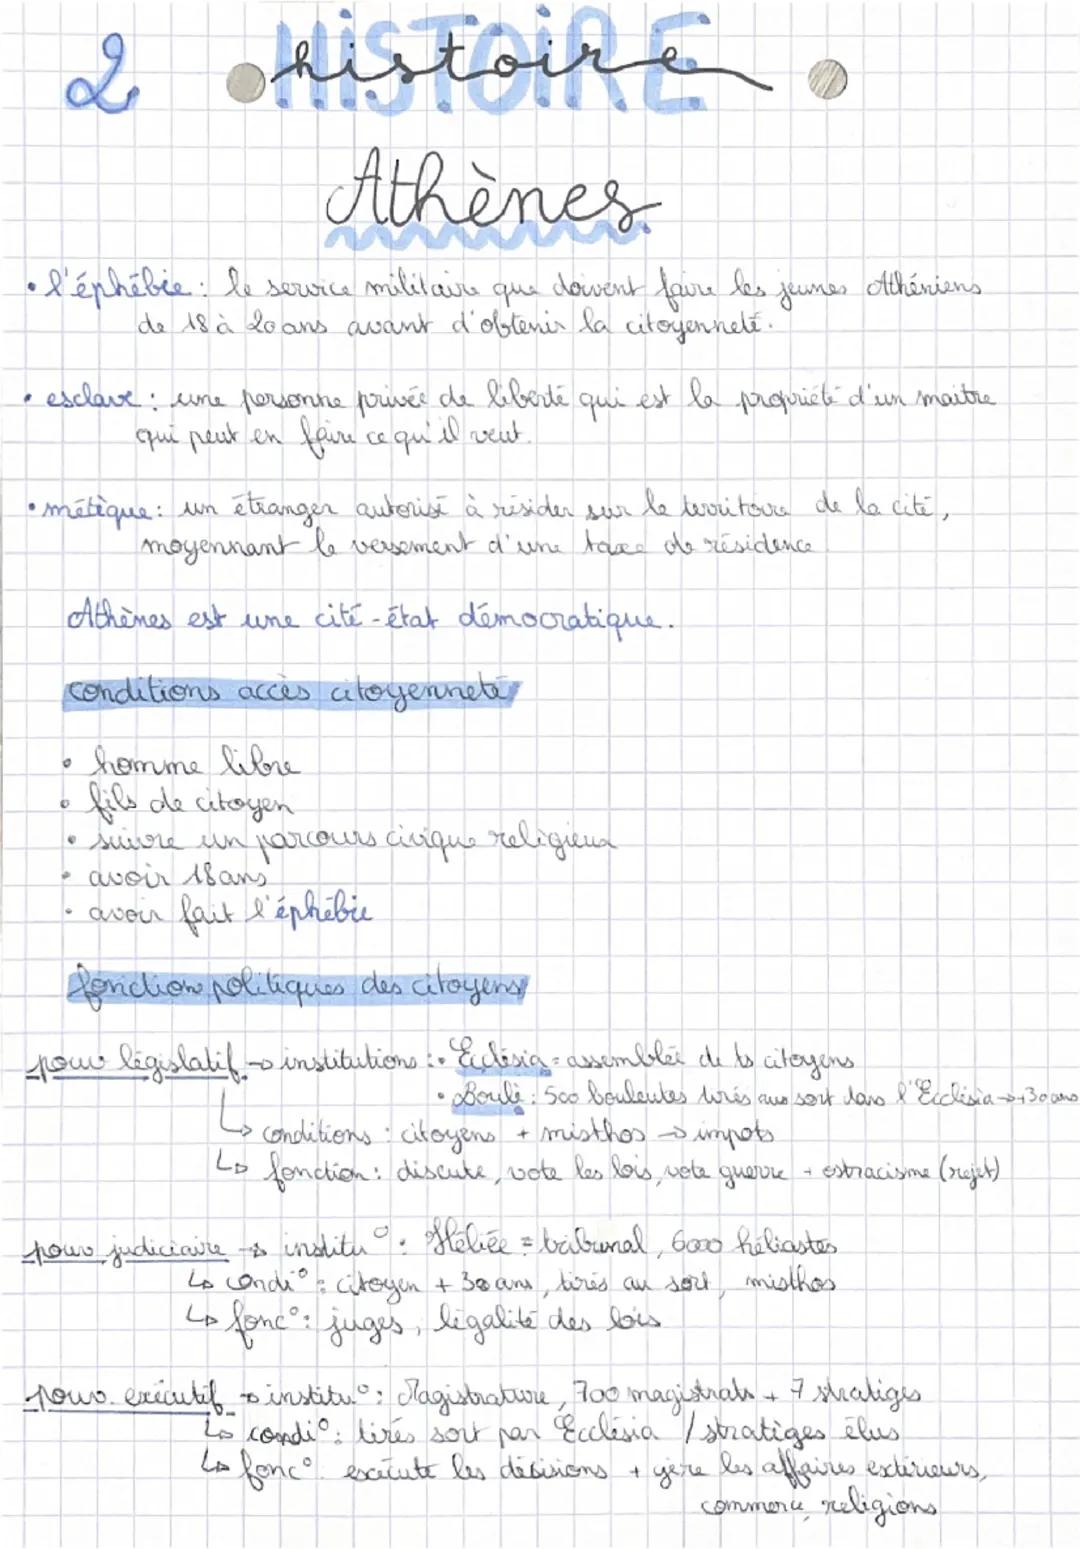 2 HISTOIRE histoire
Athènes
• l'éphébie : le service militaire que doivent faire les jeunes Athéniens
de 18 à 20 ans avant d'obtenir la citoyenneté.
• esclave : une personne privée de liberté qui est la propriété d'un maitre
qui peut en faire ce qu'il veut.
• métèque : un étranger autorisé à résider sur le territoire de la cité,
moyennant le versement d'une taxe de résidence
Athènes est une cité-état démocratique.
conditions accès citoyenneté
• homme libre
• fils de citoyen
• suivre un parcours civique religieux
• avoir 18 ans
• avoir fait l'éphébie
fonction politiques des citoyens
pouv législatif → institutions : • Ecclésia = assemblée de ts citoyens
• Boulê : 500 bouleutes tirés au sort dans l'Ecclésia → +30 ans
↳ conditions : citoyens + misthos → impots
↳ fonction : discute, vote les lois, vote guerre + ostracisme (rejet)
pouv judiciaire → institu° : Héliée = tribunal, 6000 héliastes
↳ condi° : citoyen + 30 ans, tirés au sort, misthos
↳ fonc° : juges, légalité des lois
pouv. exécutif → institu° : Magistrature, 700 magistrats + 7 stratèges
↳ condi° : tirés sort par Ecclésia / stratèges élus
↳ fonc° : exécute les décisions + gère les affaires extérieurs,
commerce, religions